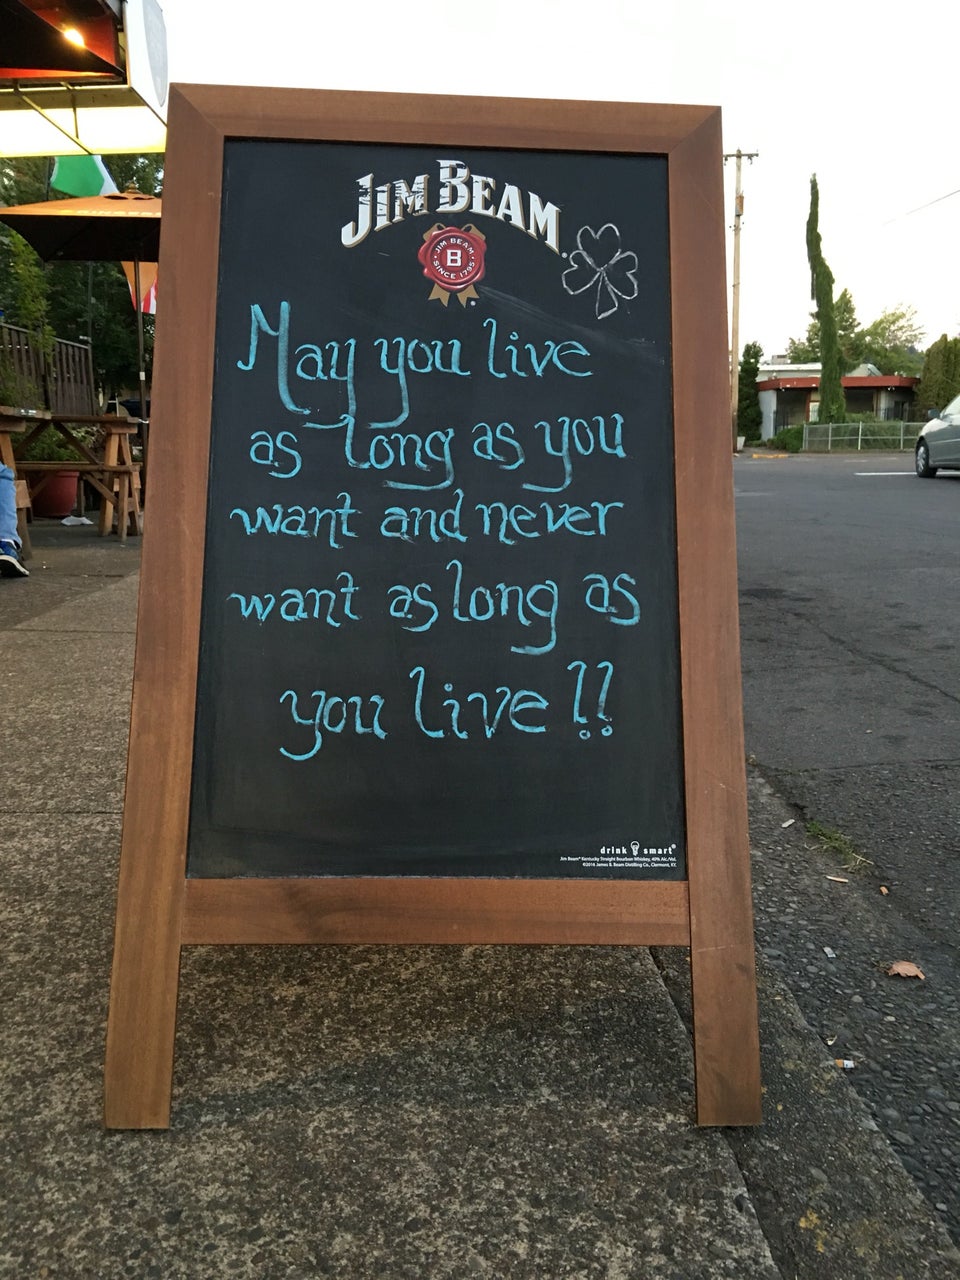 JIM BEAM
JIM BEAM
B
SINCE 1795
May you live
as long as you
want and never
want as long as
you live !!
drink smart®
Jim Beam® Kentucky Straight Bourbon Whiskey, 40% Alc./Vol.
©2016 James B. Beam Distilling Co., Clermont, KY.